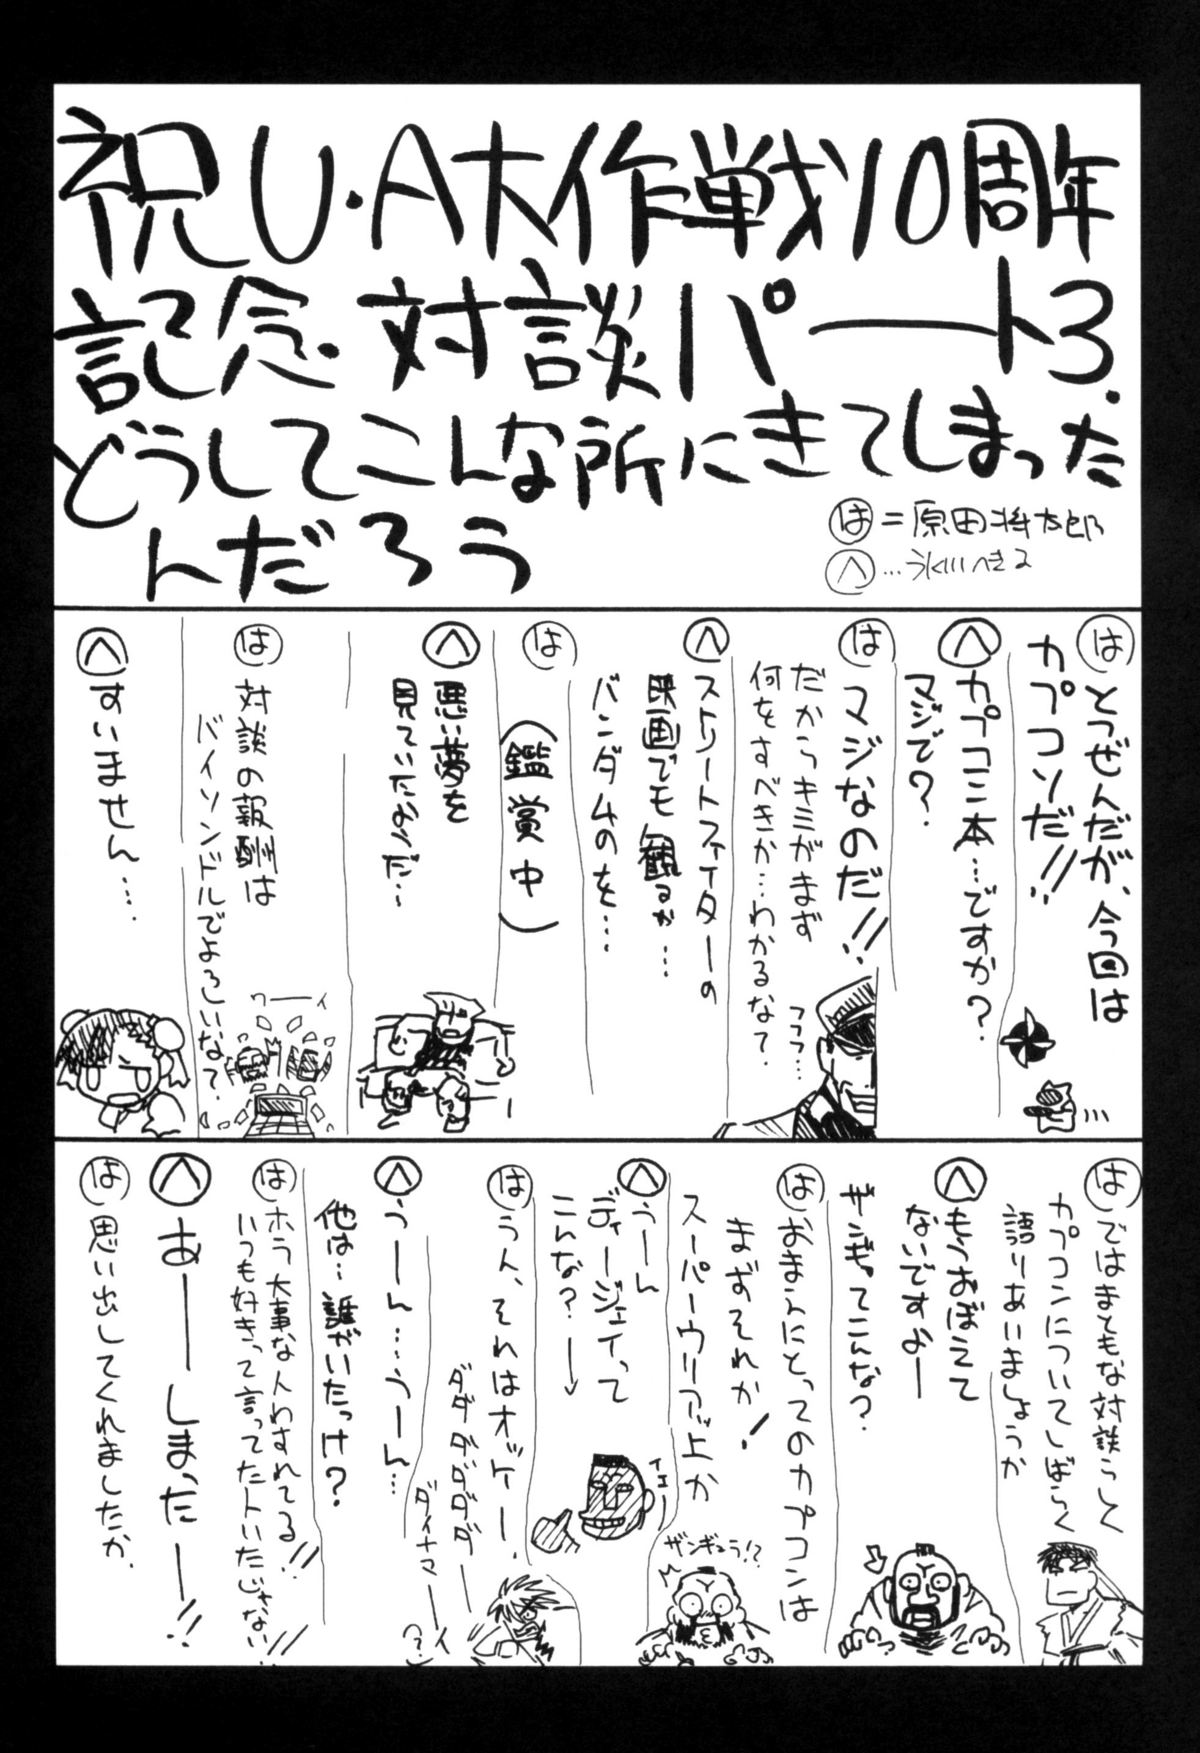 祝U・A大作戦10周年
記念・対談パート3.
どうしてこんな所にきてしまった
んだろう
は=原田将太郎
へ…うんりいへきる
は とつぜんだが、今回は
カプコンだ!!
へ カプコン本…ですか?
マジで?
は マジなのだ!!
だからキミがまず
何をすべきか…わかるな?
フフフ…
へ ストリートファイターの
映画でも観るか…
バンダムのを…
は
(鑑賞中)
へ 悪い夢を
見ていたようだ…
は 対談の報酬は
バイソンドルでよろしいな?
ワーーイ
へ すいません…
は ではまともな対談らしく
カプコンについてしばらく
語りあいましょうか
へ もうおぼえて
ないですよー
ザンギってこんな?
は おまえにとってのカプコンは
まずそれか!
スーパーウリアッ上か
ザンギュラ!?
へ うーん
ディージェイって
こんな?→
イエー
は うん、それはオッケー.
ダダダダダダー
ダイナマーイ
(?)
へ うーん…うーん…
他は…誰がいたっけ?
は ホラ大事な人わすれてる!!
いつも好きって言ってた人いたじゃない!!
へ あーーしまったーー!!
は 思い出してくれましたか.